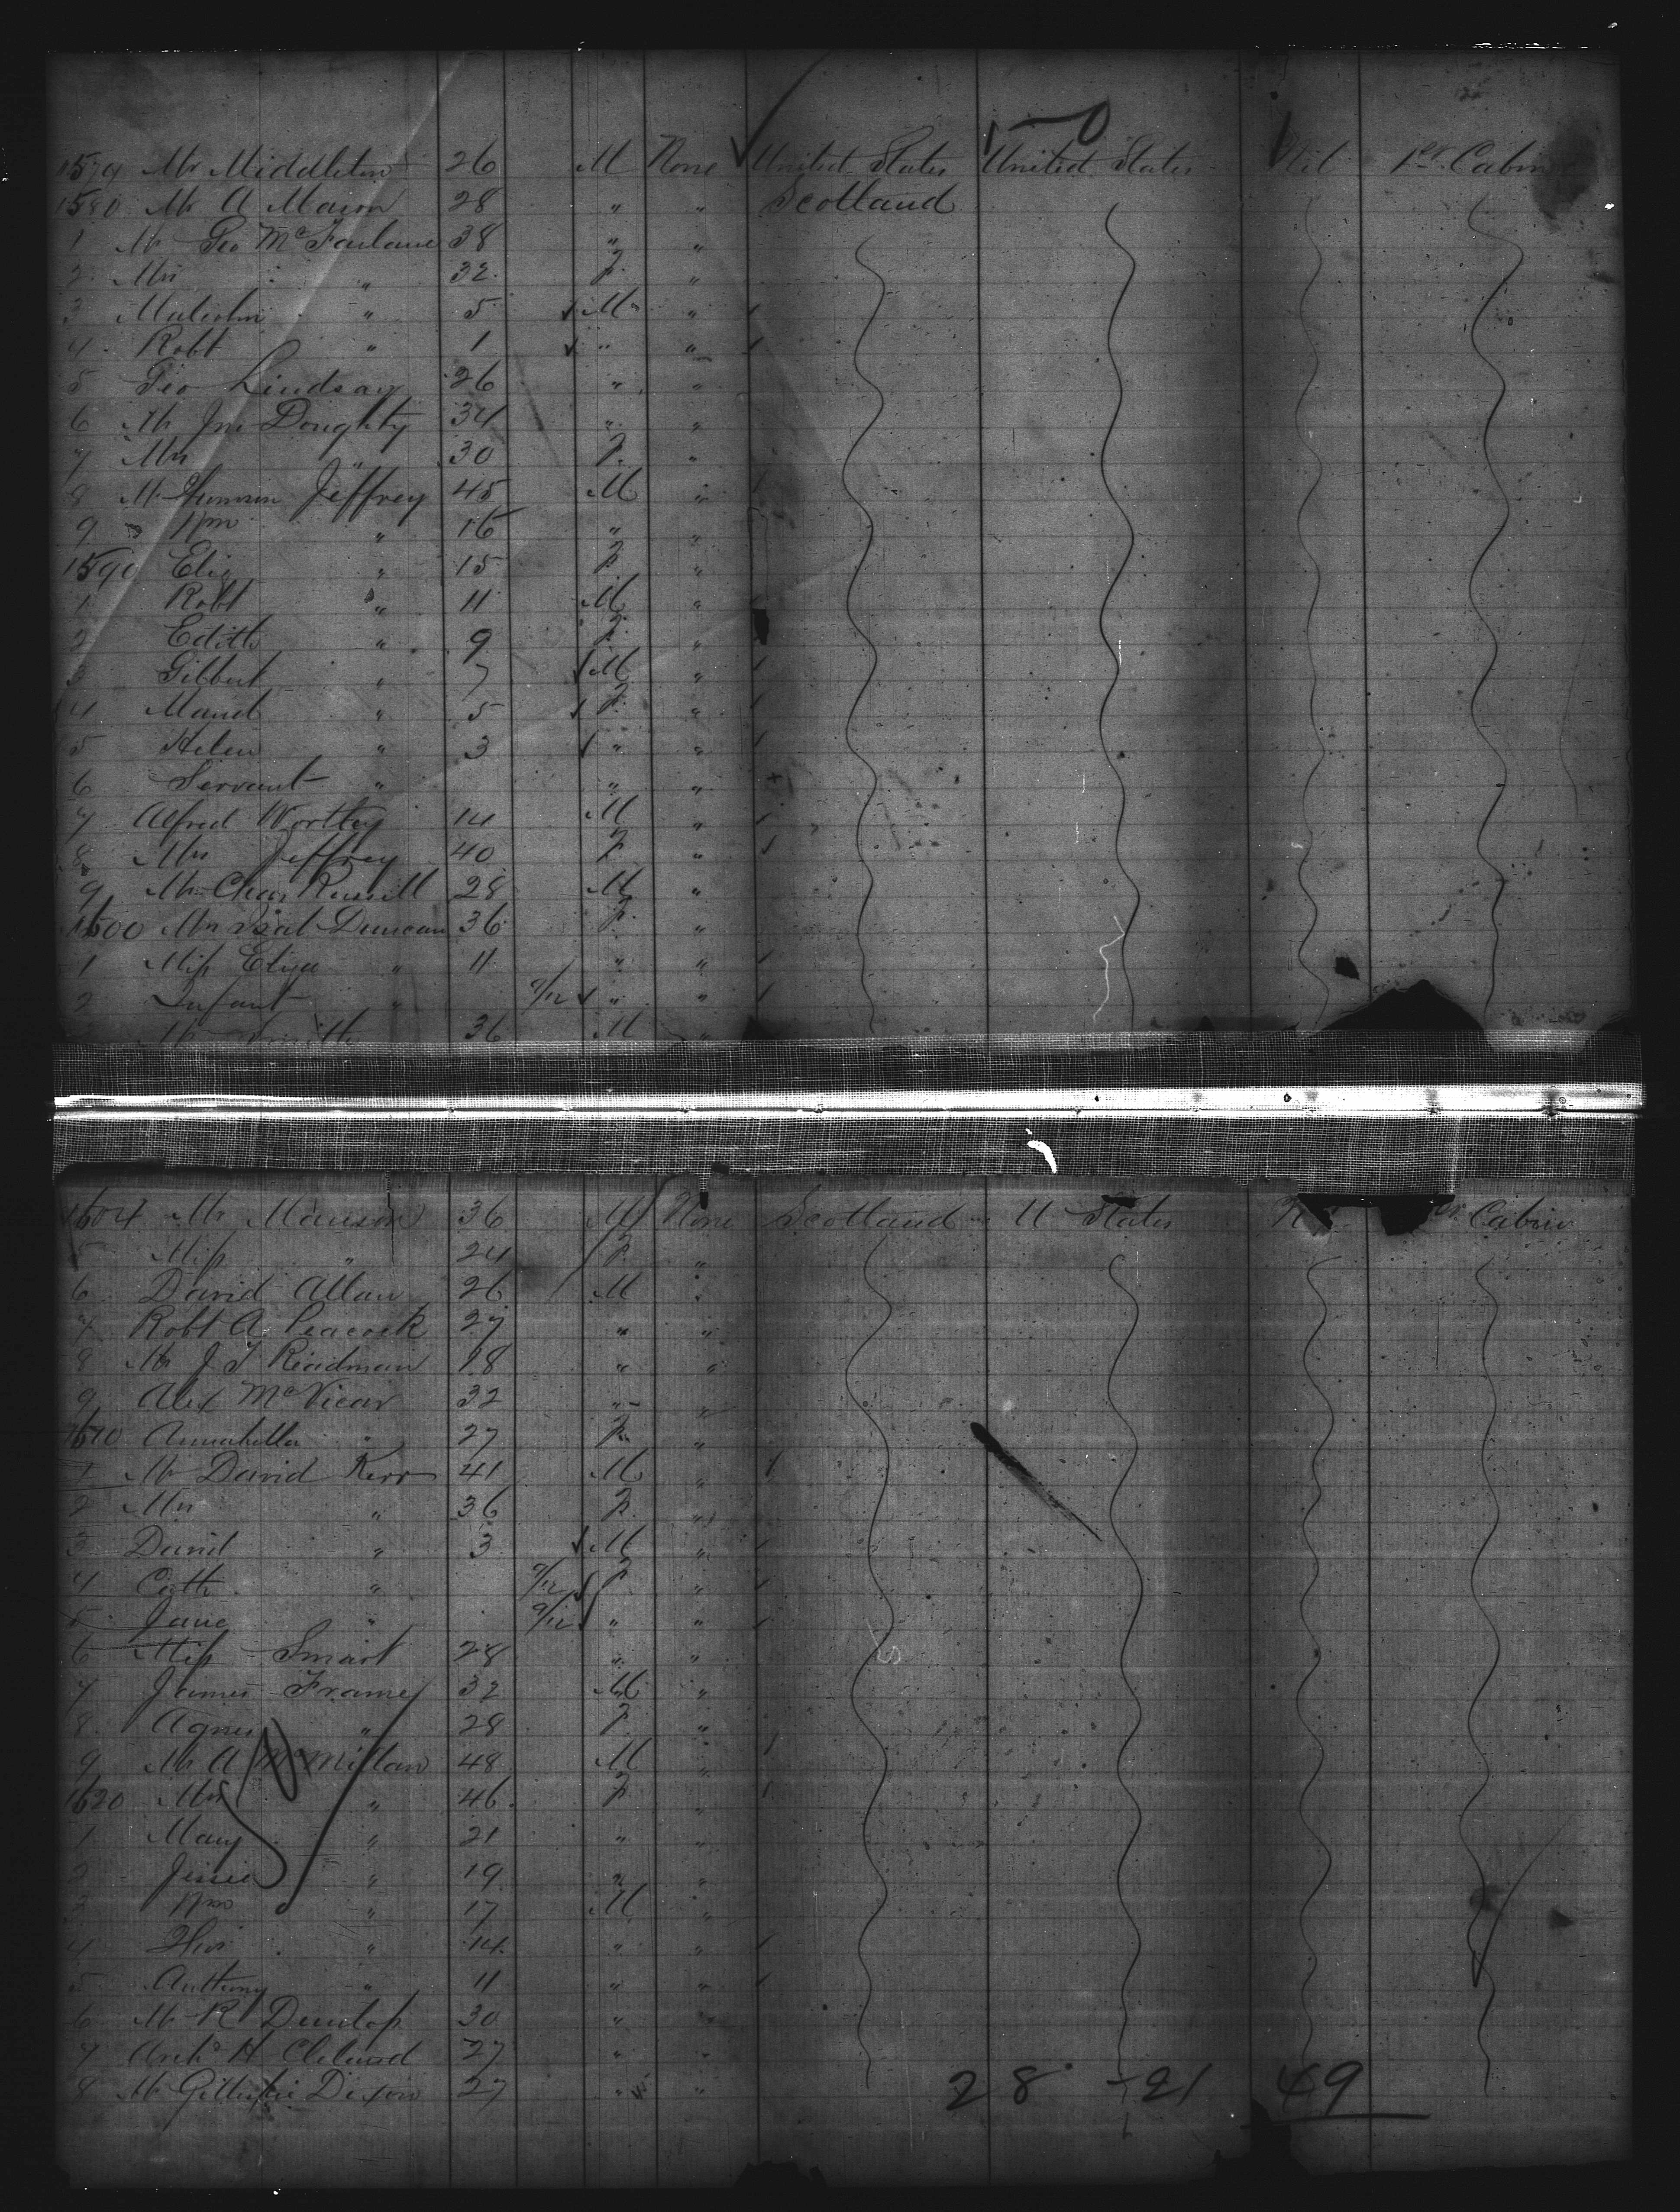 1 - 0
1579 Mr Middleton 26 M None United States United States Nil 1st Cabin
1580 Mr A Mason 28 " " Scotland
1 Mr Geo McFarlane 38 " "
2 Mrs " 32 F "
3 Malcolm " 5 M "
4 Robt " 1 " "
5 Geo Lindsay 26 " "
6 Mr Jno Doughty 34 " "
7 Mrs " 30 F "
8 Mr Jeffrey 45 M "
9 Wm " 16 " "
1590 Eliz " 15 F "
1 Robt " 11 M "
2 Edith " 9 F "
3 Gilbert " 7 M "
4 Maud " 5 F "
5 Helen " 3 " "
6 Servant " " "
7 Alfred Worttey 14 M "
8 Mrs Jeffrey 40 F "
9 Mr Chas Russell 28 M "
1600 Mrs Duncan 36 F "
1 Miss Eliza " 11 " "
2 Infant " 9/12 " "
Mr Smith 36 M "
1604 Mr Manson 36 M None Scotland U States Cabin
5 Miss " 24 F "
6 David Allan 26 M "
7 Robt A Peacock 27 " "
8 Mr J T Readman 18 " "
9 Alex McVicar 32 " "
1610 Annabella " 27 F "
1 Mr David Kerr 41 M "
2 Mrs " 36 F "
3 David " 3 M "
4 Cath " 9/12 F "
5 Jane " 9/12 " "
6 Miss Smart 28 " "
7 James Frame 32 M "
8 Agnes " 28 F "
9 Mr A McMillan 48 M "
1620 Mrs " 46 F "
1 Mary " 21 " "
2 Jessie " 19 " "
3 Wm " 17 M "
4 Thos " 14 " "
5 Anthony " 11 " "
6 Mr R Dunlop 30 " "
7 Archd H Cleland 27 " "
8 Mr Dixon 27 " "
28 - 21 49